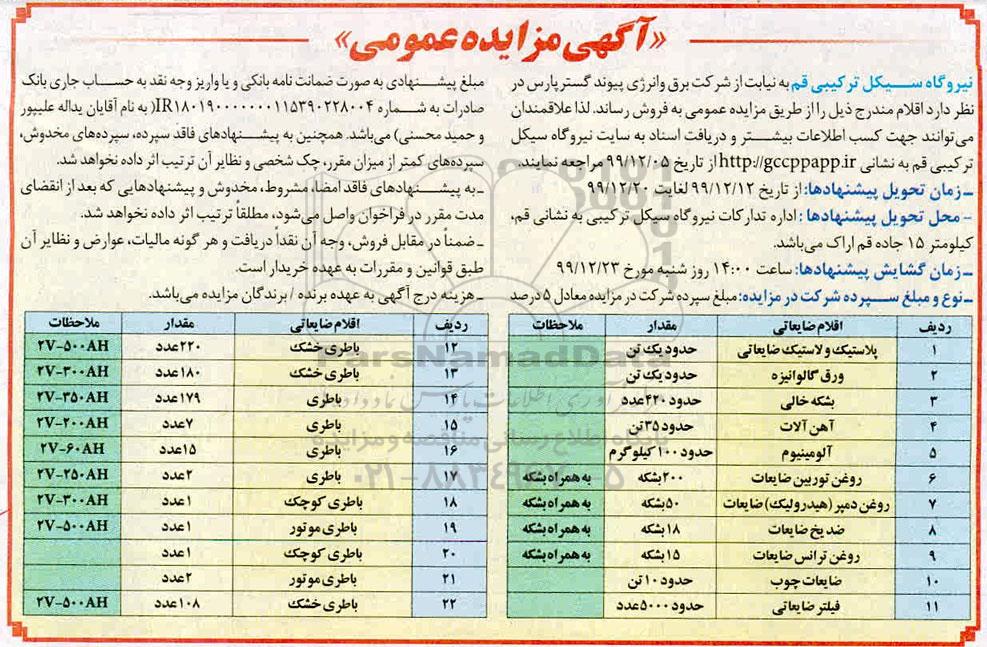 «آگهی مزایده عمومی»
نیروگاه سیکل ترکیبی قم به نیابت از شرکت برق وانرژی پیوند گستر پارس در
نظر دارد اقلام مندرج ذیل را از طریق مزایده عمومی به فروش رساند. لذا علاقمندان
می‌توانند جهت کسب اطلاعات بیشتر و دریافت اسناد به سایت نیروگاه سیکل
ترکیبی قم به نشانی http://gccppapp.ir از تاریخ ۹۹/۱۲/۰۵ مراجعه نمایند.
ـ زمان تحویل پیشنهادها: از تاریخ ۹۹/۱۲/۱۲ لغایت ۹۹/۱۲/۲۰
- محل تحویل پیشنهادها: اداره تدارکات نیروگاه سیکل ترکیبی به نشانی قم،
کیلومتر ۱۵ جاده قم اراک می‌باشد.
ـ زمان گشایش پیشنهادها: ساعت ۱۴:۰۰ روز شنبه مورخ ۹۹/۱۲/۲۳
ـ نوع و مبلغ سپرده شرکت در مزایده: مبلغ سپرده شرکت در مزایده معادل ۵ درصد
مبلغ پیشنهادی به صورت ضمانت نامه بانکی و یا واریز وجه نقد به حساب جاری بانک
صادرات به شماره IR۱۸۰۱۹۰۰۰۰۰۰۰۰۱۱۵۳۹۰۲۲۸۰۰۴( به نام آقایان یداله علیپور
و حمید محسنی) می‌باشد. همچنین به پیشنهادهای فاقد سپرده، سپرده‌های مخدوش،
سپرده‌های کمتر از میزان مقرر، چک شخصی و نظایر آن ترتیب اثر داده نخواهد شد.
ـ به پیشنهادهای فاقد امضا، مشروط، مخدوش و پیشنهادهایی که بعد از انقضای
مدت مقرر در فراخوان واصل می‌شود، مطلقاً ترتیب اثر داده نخواهد شد.
ـ ضمناً در مقابل فروش، وجه آن نقداً دریافت و هر گونه مالیات، عوارض و نظایر آن
طبق قوانین و مقررات به عهده خریدار است.
ـ هزینه درج آگهی به عهده برنده / برندگان مزایده می‌باشد.
ردیف اقلام ضایعاتی مقدار ملاحظات
۱ پلاستیک و لاستیک ضایعاتی حدود یک تن
۲ ورق گالوانیزه حدود یک تن
۳ بشکه خالی حدود ۴۲۰ عدد
۴ آهن آلات حدود ۳۵ تن
۵ آلومینیوم حدود ۱۰۰ کیلوگرم
۶ روغن توربین ضایعات ۲۰۰ بشکه به همراه بشکه
۷ روغن دمپر (هیدرولیک) ضایعات ۵۰ بشکه به همراه بشکه
۸ ضد یخ ضایعات ۱۸ بشکه به همراه بشکه
۹ روغن ترانس ضایعات ۱۵ بشکه به همراه بشکه
۱۰ ضایعات چوب حدود ۱۰ تن
۱۱ فیلتر ضایعاتی حدود ۵۰۰۰ عدد
ردیف اقلام ضایعاتی مقدار ملاحظات
۱۲ باطری خشک ۲۲۰ عدد ۲V-۵۰۰AH
۱۳ باطری خشک ۱۸۰ عدد ۲V-۳۰۰AH
۱۴ باطری ۱۷۹ عدد ۲V-۳۵۰AH
۱۵ باطری ۷ عدد ۲V-۲۰۰AH
۱۶ باطری ۱۵ عدد ۲V-۶۰AH
۱۷ باطری ۲ عدد ۲V-۲۵۰AH
۱۸ باطری کوچک ۱ عدد ۲V-۳۰۰AH
۱۹ باطری موتور ۱ عدد ۲V-۵۰۰AH
۲۰ باطری کوچک ۱ عدد
۲۱ باطری موتور ۲ عدد
۲۲ باطری خشک ۱۰۸ عدد ۲V-۵۰۰AH
ParsNamadData
پایگاه اطلاع رسانی مناقصه و مزایده